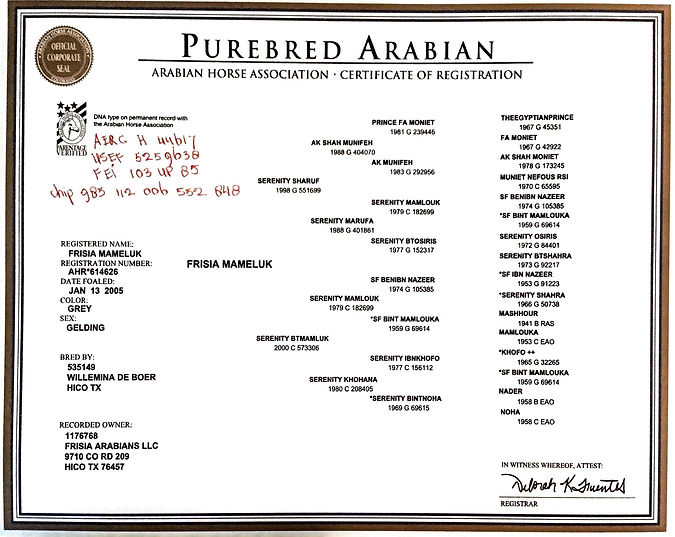 ARABIAN HORSE ASSOCIATION
OFFICIAL
CORPORATE
SEAL
PUREBRED ARABIAN
ARABIAN HORSE ASSOCIATION · CERTIFICATE OF REGISTRATION
PARENTAGE
VERIFIED
DNA type on permanent record with
the Arabian Horse Association
AERC H 44617
USEF 5259638
FEI 103 UP 85
chip 985 112 006 552 848
REGISTERED NAME:
FRISIA MAMELUK
REGISTRATION NUMBER:
AHR*614626
DATE FOALED:
JAN 13 2005
COLOR:
GREY
SEX:
GELDING
BRED BY:
535149
WILLEMINA DE BOER
HICO TX
RECORDED OWNER:
1176768
FRISIA ARABIANS LLC
9710 CO RD 209
HICO TX 76457
FRISIA MAMELUK
SERENITY SHARUF
1998 G 551699
SERENITY BTMAMLUK
2000 C 573306
AK SHAH MUNIFEH
1988 G 404070
SERENITY MARUFA
1988 G 401861
SERENITY MAMLOUK
1979 C 182699
SERENITY KHOHANA
1980 C 208405
PRINCE FA MONIET
1981 G 239446
AK MUNIFEH
1983 G 292956
SERENITY MAMLOUK
1979 C 182699
SERENITY BTOSIRIS
1977 G 152317
SF BENIBN NAZEER
1974 G 105385
*SF BINT MAMLOUKA
1959 G 69614
SERENITY IBNKHOFO
1977 C 156112
*SERENITY BINTNOHA
1969 G 69615
THEEGYPTIANPRINCE
1967 G 45351
FA MONIET
1967 G 42922
AK SHAH MONIET
1978 G 173245
MUNIET NEFOUS RSI
1970 C 65595
SF BENIBN NAZEER
1974 G 105385
*SF BINT MAMLOUKA
1959 G 69614
SERENITY OSIRIS
1972 G 84401
SERENITY BTSHAHRA
1973 G 92217
*SF IBN NAZEER
1953 G 91223
*SERENITY SHAHRA
1966 G 50738
MASHHOUR
1941 B RAS
MAMLOUKA
1953 C EAO
*KHOFO ++
1965 G 32265
*SF BINT MAMLOUKA
1959 G 69614
NADER
1958 B EAO
NOHA
1958 C EAO
IN WITNESS WHEREOF, ATTEST:
Deborah K. Fuentes
REGISTRAR